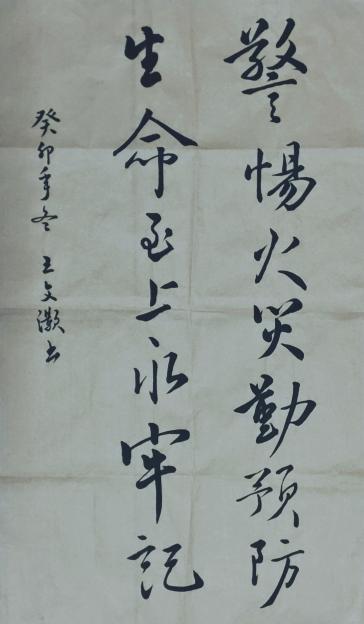 警惕火災勤預防
生命至上永牢記
癸卯年冬 王文灝書